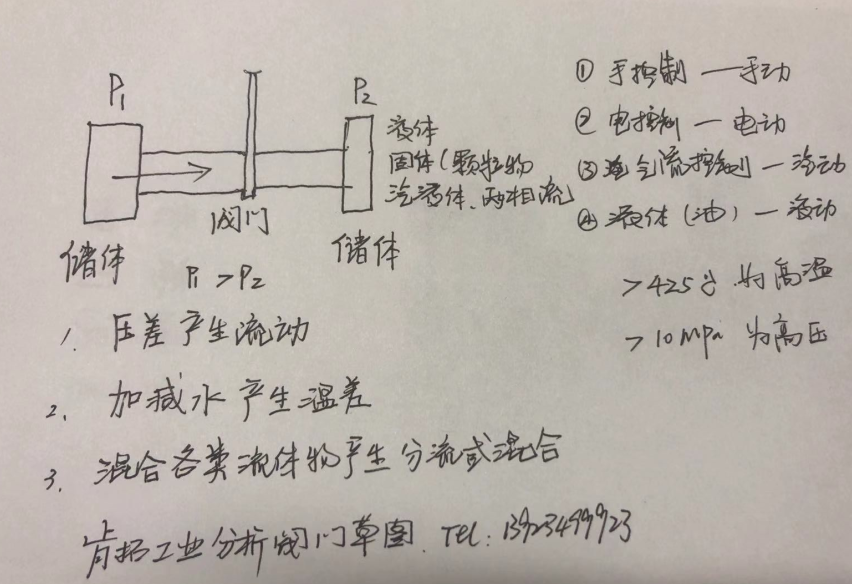 P₁
P₂
液体
固体(颗粒物
汽液体、两相流)
阀门
储体
储体
P₁ > P₂
① 手控制 — 手动
② 电控制 — 电动
③ 气流控制 — 汽动
④ 液体(油) — 液动
>425℃ 为高温
>10 MPa 为高压
1. 压差产生流动
2. 加减水产生温差
3. 混合各类流体物产生分流或混合
肯拓工业分析阀门草图. TEL: 13923499923